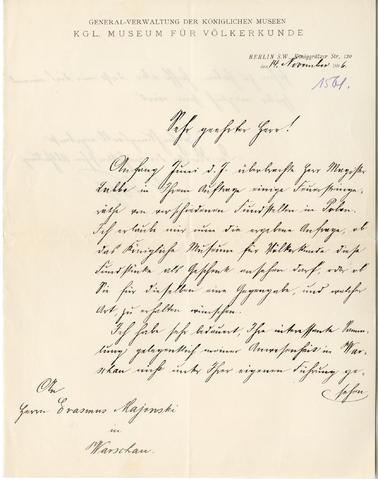 GENERAL-VERWALTUNG DER KÖNIGLICHEN MUSEEN
KGL. MUSEUM FÜR VÖLKERKUNDE
BERLIN S.W. Königgrätzer Str. 120
den 14. November
1561.
Sehr geehrter Herr!
Anfang Juni d. J. überbrachte Herr Magister
in Ihrem Auftrage einige Feuersteinge-
räthe von verschiedenen Fundstellen in Polen.
Ich erlaube mir nun die ergebene Anfrage, ob
das Königliche Museum für Völkerkunde diese
Fundstücke als Geschenk ansehen darf, oder ob
Sie für dieselben eine Gegengabe, und welcher
Art, zu erhalten wünschen.
Ich habe sehr bedauert, Ihre interessante Samm-
lung gelegentlich meiner Anwesenheit in War-
schau nicht unter Ihrer eigenen Führung ge-
sehen
An
Herrn Erasmus Majewski
in
Warschau.